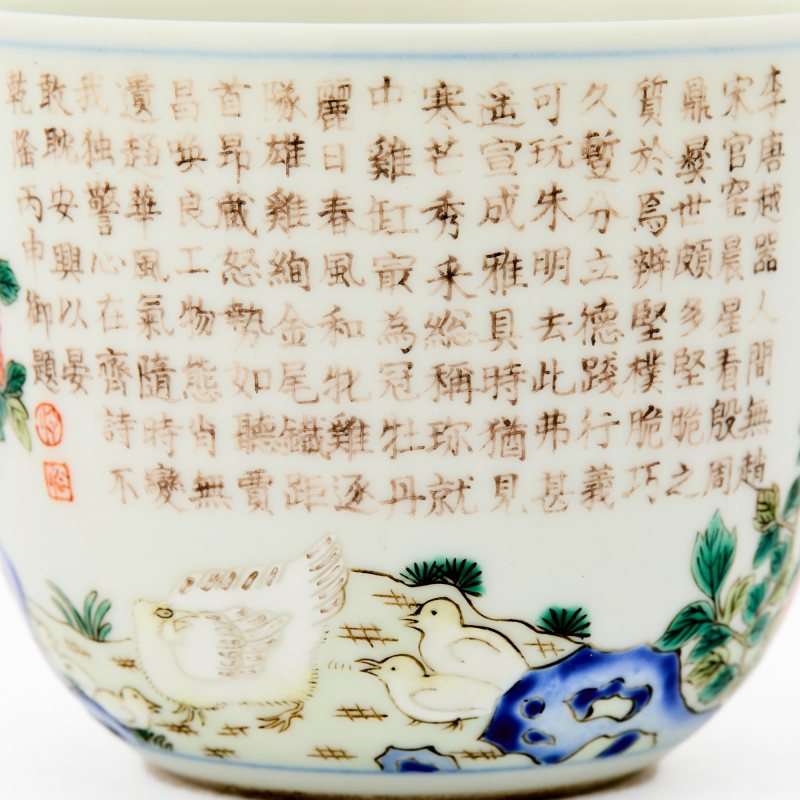 李唐越器人間無趙
宋官窑晨星看殷周
鼎彝世頗多堅脆之
質於焉辨堅樸脆巧
久暫分立德踐行義
可玩朱明去此弗甚
遥宣成雅具時猶見
寒芒秀采総稱珎就
中雞缸最為冠牡丹
麗日春風和牝雞逐
隊雄雞絢金尾鐵距
首昂藏怒勢如聽賈
昌喚良工物態肖無
遺趨華風氣隨時變
我独警心在齊詩不
敢耽安興以晏
乾隆丙申御題